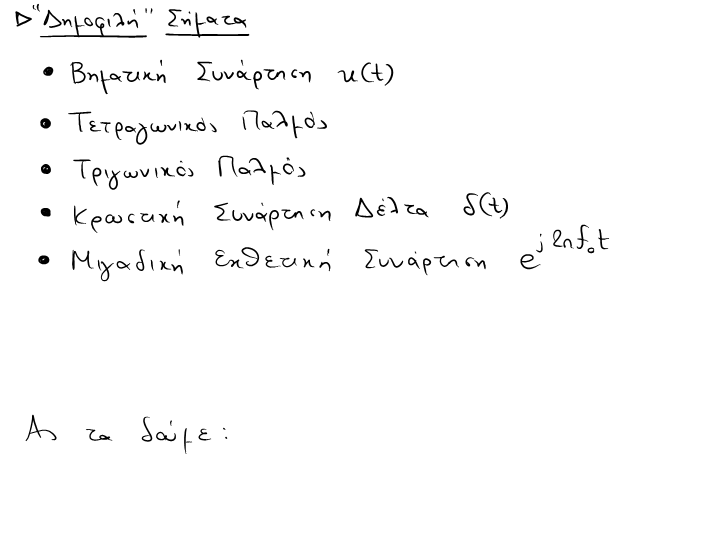 ▷ "Δημοφιλή" Σήματα
• Βηματική Συνάρτηση u(t)
• Τετραγωνικός Παλμός
• Τριγωνικός Παλμός
• Κρουστική Συνάρτηση Δέλτα δ(t)
• Μιγαδική Εκθετική Συνάρτηση e^{j2πf₀t}
Ας τα δούμε: